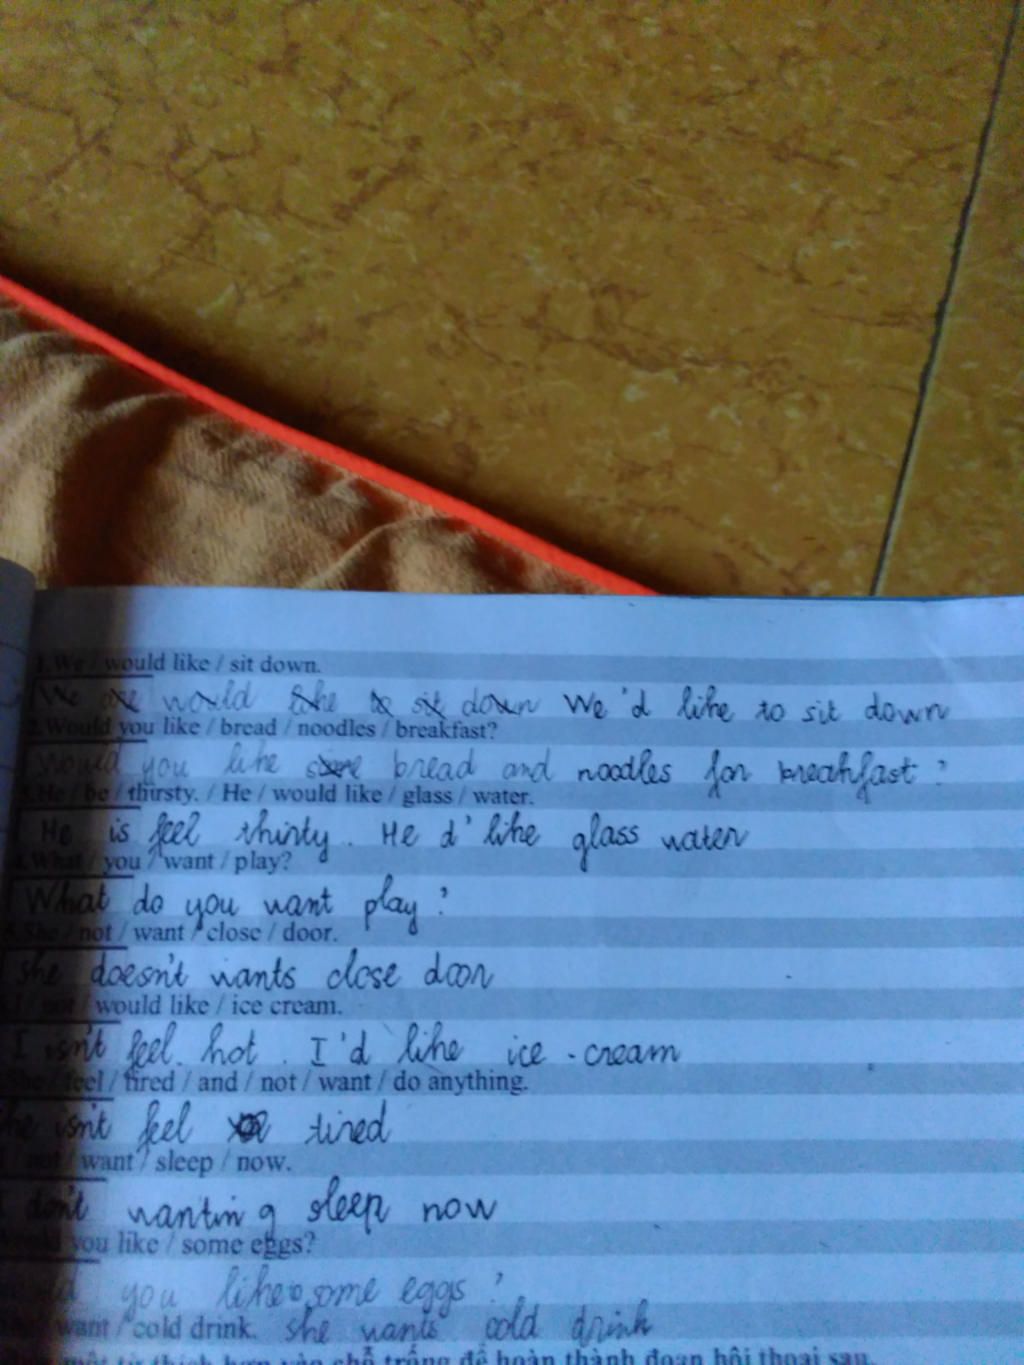 1.We / would like / sit down.
We are would like to sit down We'd like to sit down
2.Would you like / bread / noodles / breakfast?
Would you like some bread and noodles for breakfast?
3.He / be / thirsty. / He / would like / glass / water.
He is feel thirsty. He d' like glass water
4.What / you / want / play?
What do you want play?
5.She / not / want / close / door.
She doesn't wants close door
/ not / would like / ice cream.
I isn't feel hot. I'd like ice-cream
She / feel / tired / and / not / want / do anything.
She isn't feel tired
/ not / want / sleep / now.
don't wanting sleep now
you like / some eggs?
you like some eggs?
want / cold drink. She wants cold drink
một từ thích hợp vào chỗ trống để hoàn thành đoạn hội thoại sau.